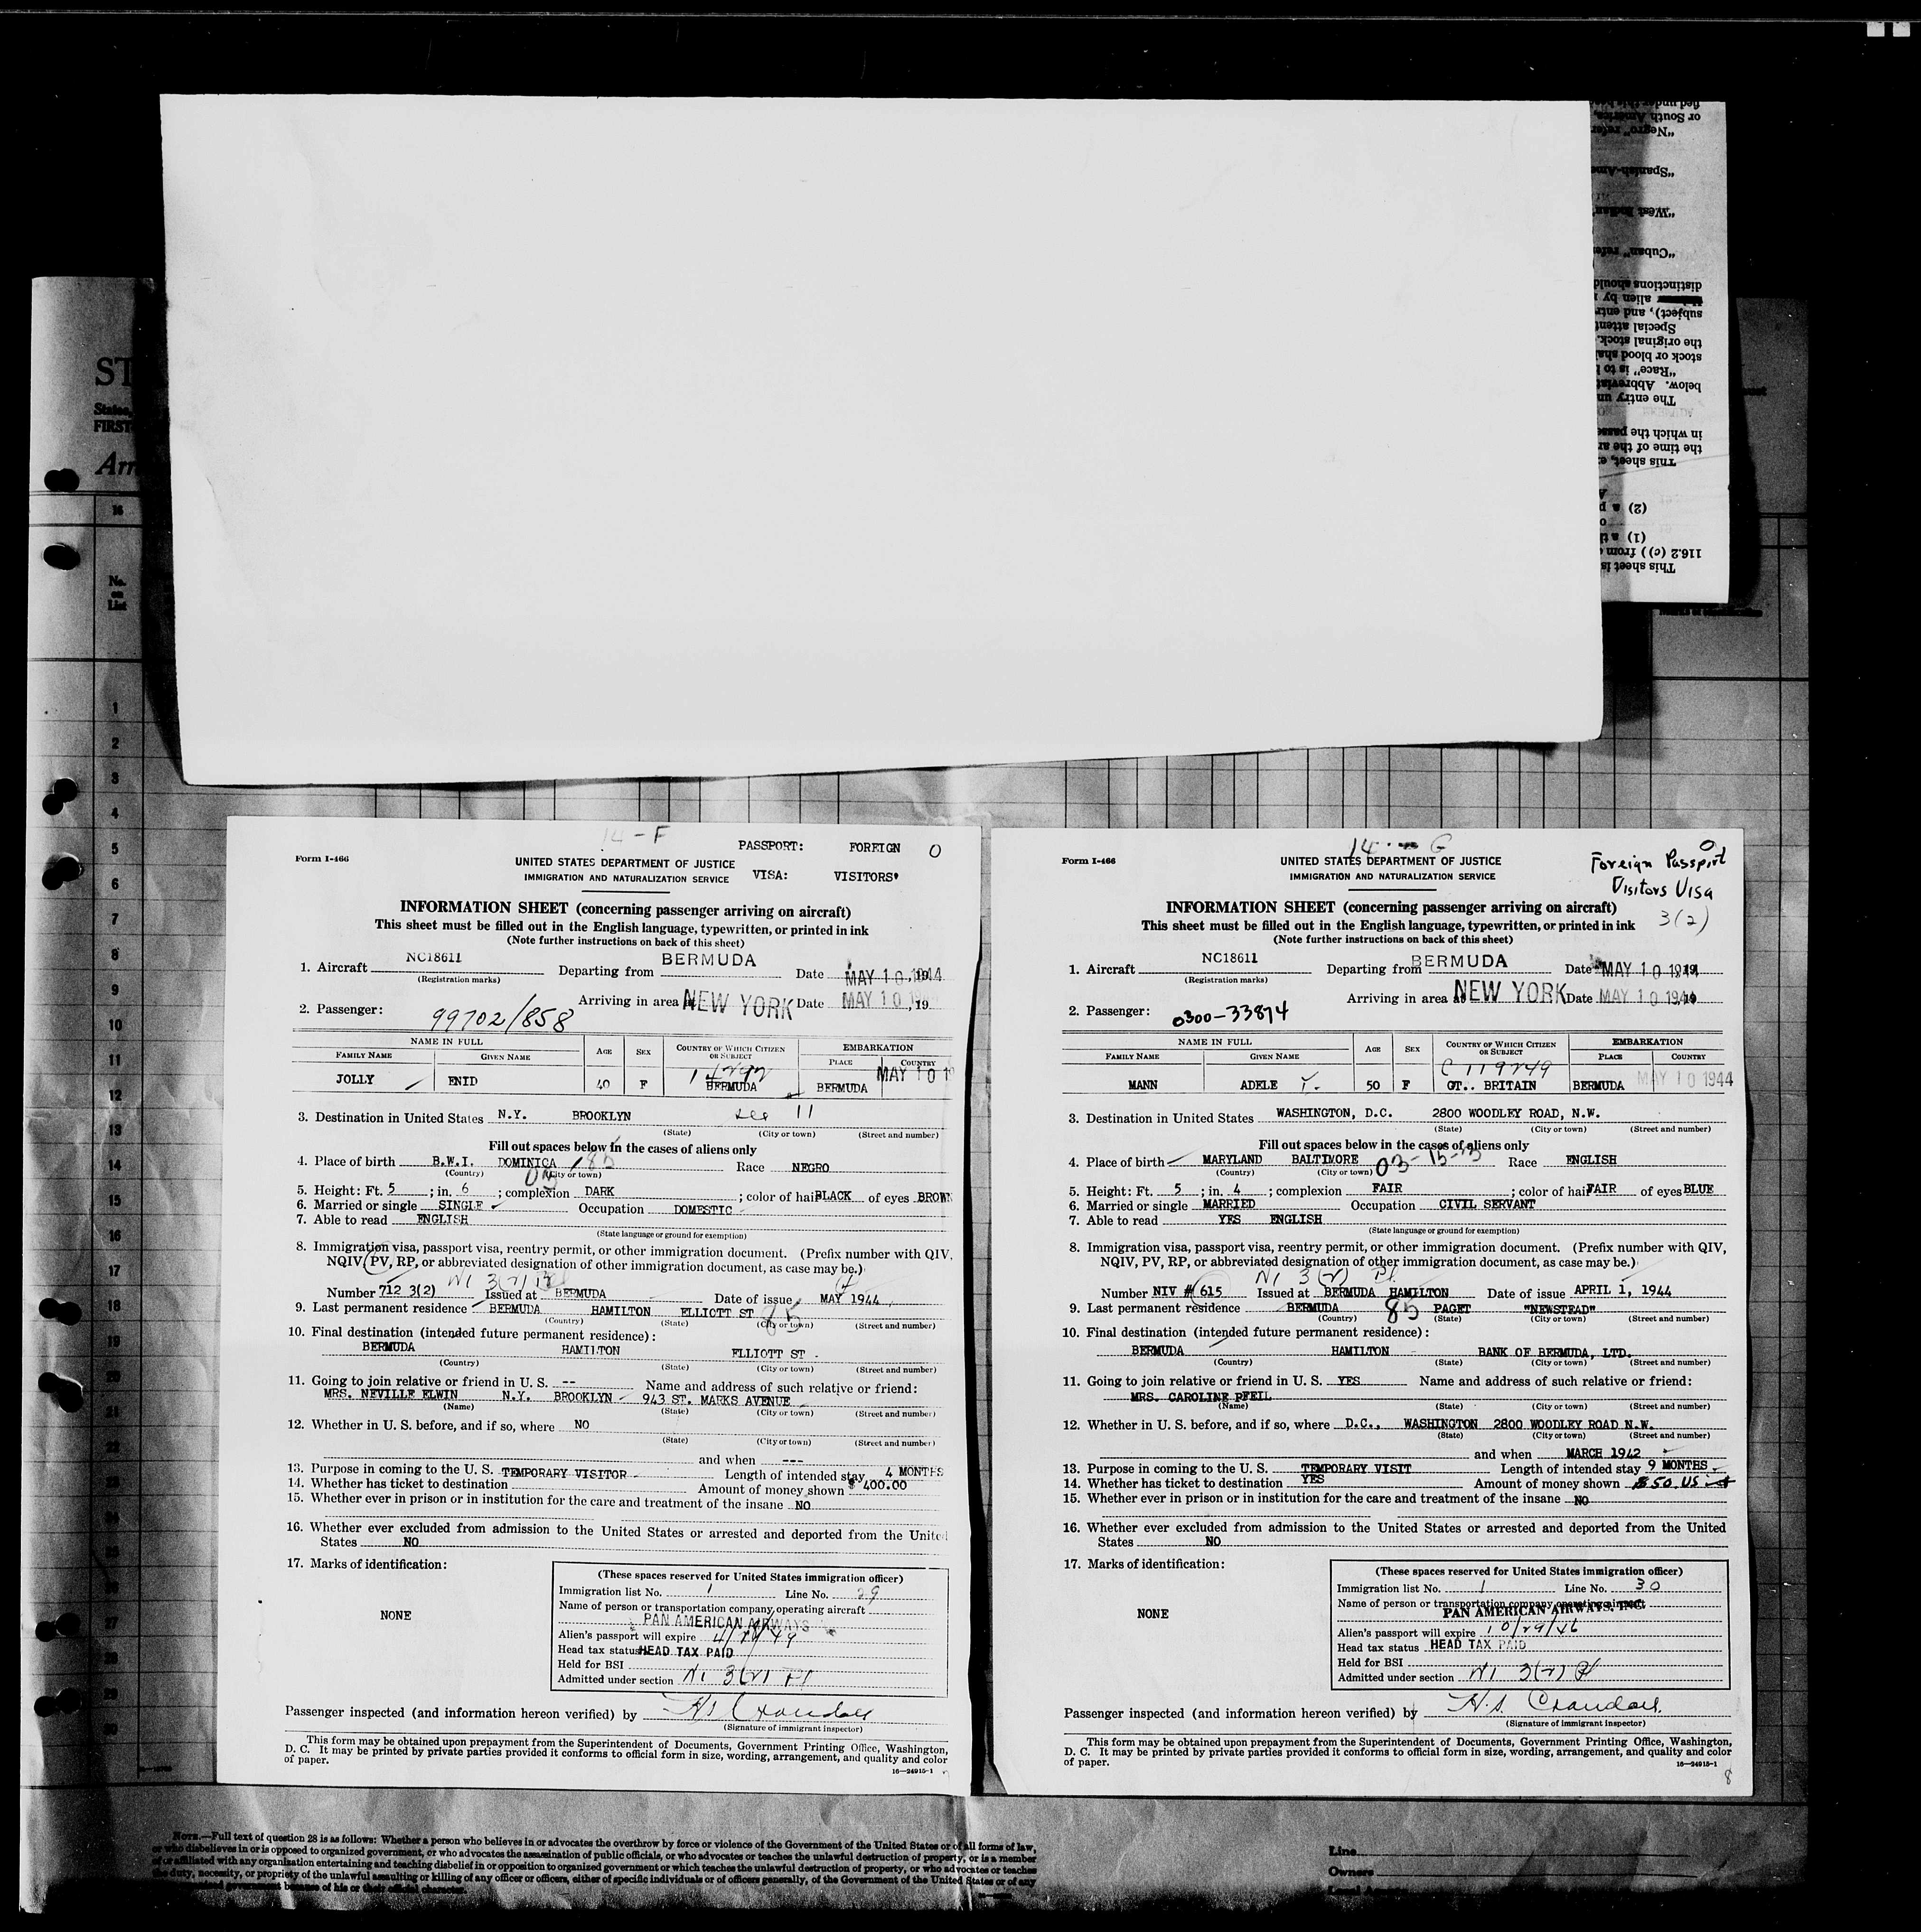 14 - F
PASSPORT: FOREIGN O
Form I-466
UNITED STATES DEPARTMENT OF JUSTICE
IMMIGRATION AND NATURALIZATION SERVICE VISA: VISITORS'
INFORMATION SHEET (concerning passenger arriving on aircraft)
This sheet must be filled out in the English language, typewritten, or printed in ink
(Note further instructions on back of this sheet)
1. Aircraft NC18611 Departing from BERMUDA Date MAY 10 1944
(Registration marks)
Arriving in area at NEW YORK Date MAY 10, 19
2. Passenger: 99702/858
NAME IN FULL AGE SEX COUNTRY OF WHICH CITIZEN OR SUBJECT EMBARKATION
FAMILY NAME GIVEN NAME PLACE COUNTRY
JOLLY ENID 40 F BERMUDA BERMUDA MAY 10 19
3. Destination in United States N.Y. BROOKLYN see 11
(State) (City or town) (Street and number)
Fill out spaces below in the cases of aliens only
4. Place of birth B.W.I. DOMINICA Race NEGRO
(Country) (City or town)
5. Height: Ft. 5 ; in. 6 ; complexion DARK ; color of hair BLACK of eyes BROWN
6. Married or single SINGLE Occupation DOMESTIC
7. Able to read ENGLISH
(State language or ground for exemption)
8. Immigration visa, passport visa, reentry permit, or other immigration document. (Prefix number with QIV,
NQIV, PV, RP, or abbreviated designation of other immigration document, as case may be.)
Number 712 3(2) Issued at BERMUDA Date of issue MAY 1944
9. Last permanent residence BERMUDA HAMILTON ELLIOTT ST 85
(Country) (State) (City or town) (Street and number)
10. Final destination (intended future permanent residence):
BERMUDA HAMILTON ELLIOTT ST.
(Country) (State) (City or town) (Street and number)
11. Going to join relative or friend in U. S. -- Name and address of such relative or friend:
MRS. NEVILLE ELWIN N.Y. BROOKLYN 943 ST. MARKS AVENUE
(Name) (State) (City or town) (Street and number)
12. Whether in U. S. before, and if so, where NO
(State) (City or town) (Street and number)
and when ---
13. Purpose in coming to the U. S. TEMPORARY VISITOR Length of intended stay 4 MONTHS
14. Whether has ticket to destination Amount of money shown $ 400.00
15. Whether ever in prison or in institution for the care and treatment of the insane NO
16. Whether ever excluded from admission to the United States or arrested and deported from the United
States NO
17. Marks of identification:
NONE
(These spaces reserved for United States immigration officer)
Immigration list No. 1 Line No. 29
Name of person or transportation company operating aircraft
PAN AMERICAN AIRWAYS
Alien's passport will expire
Head tax status HEAD TAX PAID
Held for BSI
Admitted under section
Passenger inspected (and information hereon verified) by H S Crandall
(Signature of immigrant inspector)
This form may be obtained upon prepayment from the Superintendent of Documents, Government Printing Office, Washington,
D. C. It may be printed by private parties provided it conforms to official form in size, wording, arrangement, and quality and color
of paper.
16—24915-1
14 - G
O
Form I-466
UNITED STATES DEPARTMENT OF JUSTICE
IMMIGRATION AND NATURALIZATION SERVICE
Foreign Passport
Visitors Visa
3(2)
INFORMATION SHEET (concerning passenger arriving on aircraft)
This sheet must be filled out in the English language, typewritten, or printed in ink
(Note further instructions on back of this sheet)
1. Aircraft NC18611 Departing from BERMUDA Date MAY 10 1944
(Registration marks)
Arriving in area at NEW YORK Date MAY 10 1944
2. Passenger: 0300-33874
NAME IN FULL AGE SEX COUNTRY OF WHICH CITIZEN OR SUBJECT EMBARKATION
FAMILY NAME GIVEN NAME PLACE COUNTRY
MANN ADELE 50 F GT.. BRITAIN BERMUDA MAY 10 1944
3. Destination in United States WASHINGTON, D.C. 2800 WOODLEY ROAD, N.W.
(State) (City or town) (Street and number)
Fill out spaces below in the cases of aliens only
4. Place of birth MARYLAND BALTIMORE Race ENGLISH
(Country) (City or town)
5. Height: Ft. 5 ; in. 4 ; complexion FAIR ; color of hair FAIR of eyes BLUE
6. Married or single MARRIED Occupation CIVIL SERVANT
7. Able to read YES ENGLISH
(State language or ground for exemption)
8. Immigration visa, passport visa, reentry permit, or other immigration document. (Prefix number with QIV,
NQIV, PV, RP, or abbreviated designation of other immigration document, as case may be.)
Number NIV # 615 Issued at BERMUDA HAMILTON Date of issue APRIL 1, 1944
9. Last permanent residence BERMUDA 85 PAGET "NEWSTEAD"
(Country) (State) (City or town) (Street and number)
10. Final destination (intended future permanent residence):
BERMUDA HAMILTON BANK OF BERMUDA, LTD.
(Country) (State) (City or town) (Street and number)
11. Going to join relative or friend in U. S. YES Name and address of such relative or friend:
MRS. CAROLINE PFEIL
(Name) (State) (City or town) (Street and number)
12. Whether in U. S. before, and if so, where D.C., WASHINGTON 2800 WOODLEY ROAD N.W.
(State) (City or town) (Street and number)
and when MARCH 1942
13. Purpose in coming to the U. S. TEMPORARY VISIT Length of intended stay 9 MONTHS
14. Whether has ticket to destination YES Amount of money shown $50. US
15. Whether ever in prison or in institution for the care and treatment of the insane NO
16. Whether ever excluded from admission to the United States or arrested and deported from the United
States NO
17. Marks of identification:
NONE
(These spaces reserved for United States immigration officer)
Immigration list No. 1 Line No. 30
Name of person or transportation company operating aircraft
PAN AMERICAN AIRWAYS, INC.
Alien's passport will expire 10/29/46
Head tax status HEAD TAX PAID
Held for BSI
Admitted under section
Passenger inspected (and information hereon verified) by H. S. Crandall
(Signature of immigrant inspector)
This form may be obtained upon prepayment from the Superintendent of Documents, Government Printing Office, Washington,
D. C. It may be printed by private parties provided it conforms to official form in size, wording, arrangement, and quality and color
of paper.
16—24915-1
8
NOTE.—Full text of question 28 is as follows: Whether a person who believes in or advocates the overthrow by force or violence of the Government of the United States or of all forms of law,
or who disbelieves in or is opposed to organized government, or who advocates the assassination of public officials, or who advocates or teaches the unlawful destruction of property, or is a member
of or affiliated with any organization entertaining and teaching disbelief in or opposition to organized government or which teaches the unlawful destruction of property, or who advocates or teaches
the duty, necessity, or propriety of the unlawful assaulting or killing of any officer or officers, either of specific individuals or of officers generally, of the Government of the United States or of any
organized government because of his or their official character.
Line
Owners